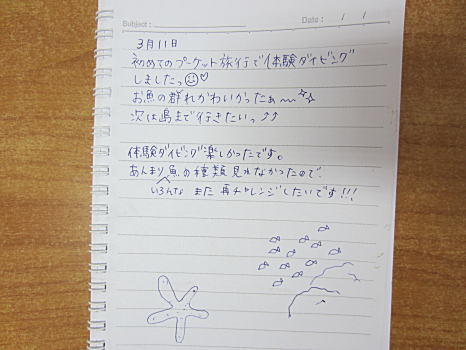 Subject :
Date : / /
3月11日
初めてのプーケット旅行で体験ダイビング
しましたっ☺♡
お魚の群れかわいかったぁ〜✧✧
次は島まで行きたいっ⤴⤴
体験ダイビング楽しかったです。
あんまり魚の種類見れなかったので、
いろんな また 再チャレンジしたいです!!!